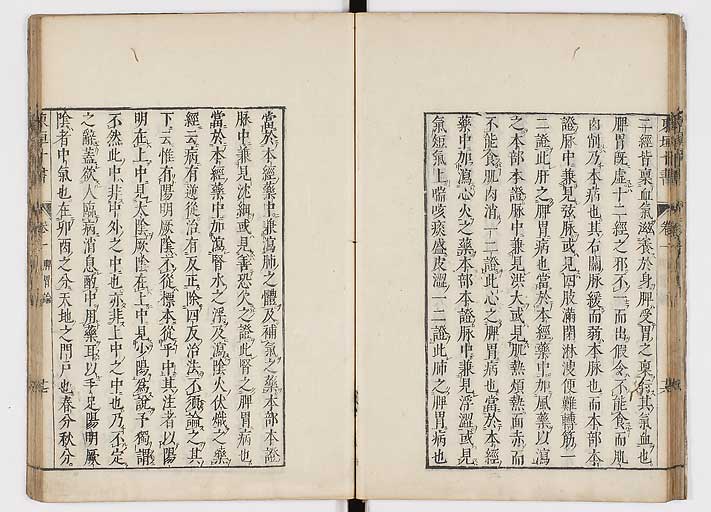 二經皆稟血氣滋養於身脾受胃之稟行其氣血也
脾胃既虛十二經之邪不一而出假令不能食而肌
肉削乃本病也其右關脉緩而弱本脉也而本部本
證脉中兼見弦脉或見四肢滿閉淋溲便難轉筋一
二證此肝之脾胃病也當於本經藥中加風藥以瀉
之本部本證脉中兼見洪大或見肌熱煩熱面赤而
不能食肌肉消一二證此心之脾胃病也當於本經
藥中加瀉心火之藥本部本證脉中兼見浮濇或見
氣短氣上喘咳痰盛皮澀一二證此肺之脾胃病也
當於本經藥中兼瀉肺之體及補氣之藥本部本證
脉中兼見沈細或見善恐欠之證此腎之脾胃病也
當於本經藥中加瀉腎水之浮及瀉陰火伏熾之藥
經云病有逆從治有反正除四反治法不須論之其
下云惟有陽明厥陰不從標本從乎中其注者以陽
明在上中見太陰厥陰在上中見少陽爲說予獨謂
不然此中非中外之中也亦非上中之中也乃不定
之辭蓋欲人臨病消息酌中用藥耳以手足陽明厥
陰者中氣也在卯酉之分天地之門戶也春分秋分
東垣十書
卷一
脾胃論